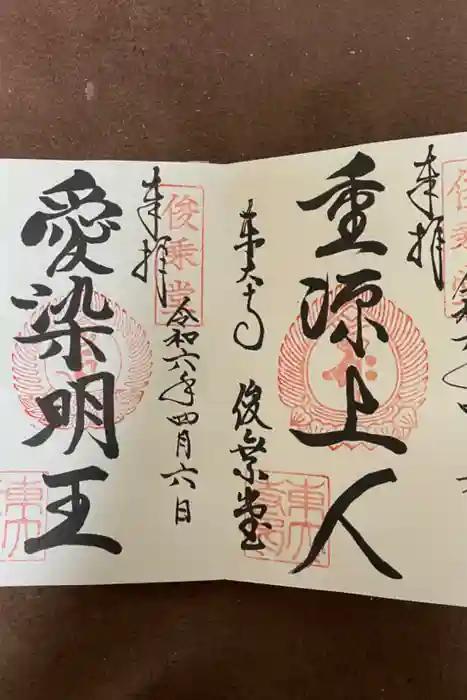 奉拝
俊乗堂
令和六
重源上人
東大寺
俊乗堂
奉拝
俊乗堂
令和六年四月六日
愛染明王
東大